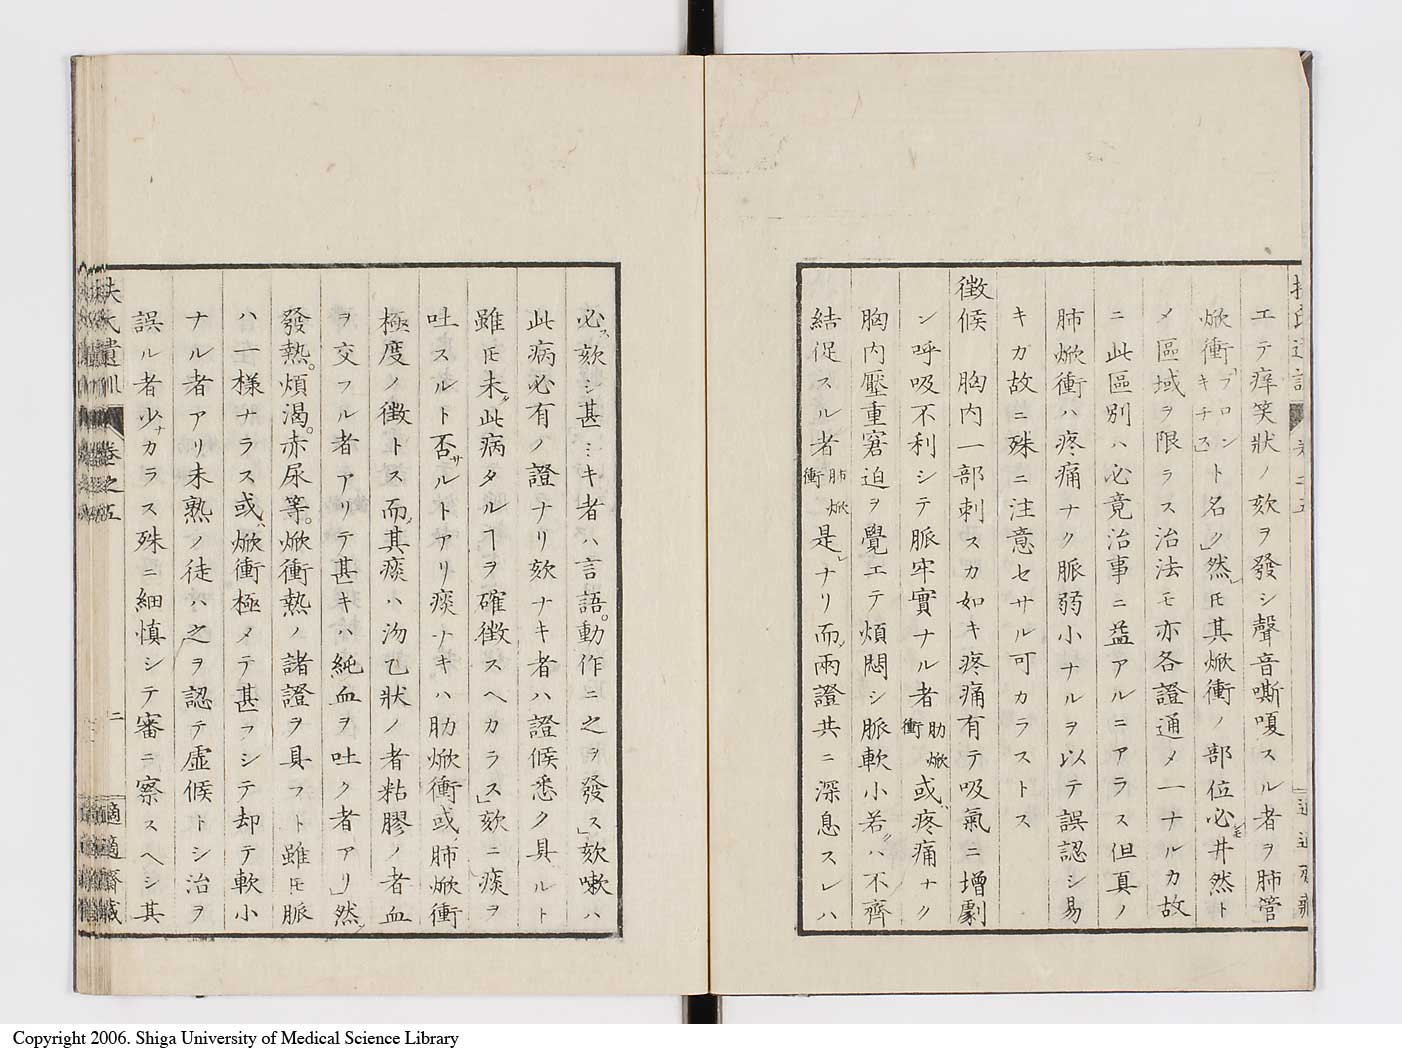 扶氏遺訓
卷之五
エテ痒笑狀ノ欬ヲ發シ聲音嘶嗄スル者ヲ肺管
焮衝「ブロンキチス」ト名ク」然𪜈其焮衝ノ部位必モ井然ト
メ區域ヲ限ラス治法モ亦各證通メ一ナルカ故
ニ此區別ハ必竟治事ニ益アルニアラス但真ノ
肺焮衝ハ疼痛ナク脈弱小ナルヲ以テ誤認シ易
キガ故ニ殊ニ注意セサル可カラストス
徵候 胸内一部刺スカ如キ疼痛有テ吸氣ニ增劇
シ呼吸不利シテ脈牢實ナル者肋焮衝或ハ疼痛ナク
胸内壓重窘迫ヲ覺エテ煩悶シ脈軟小若ハ不齊
結促スル者肺焮衝是」ナリ而〆兩證共ニ深息スレハ
必ス欬シ甚ミキ者ハ言語。動作ニ之ヲ發ス」欬嗽ハ
此病必有ノ證ナリ欬ナキ者ハ證候悉ク具ルト
雖𪜈未タ此病タルヿヲ確徵スヘカラス」欬ニ痰ヲ
吐スルト否サルトアリ痰ナキハ肋焮衝或肺焮衝
極度ノ徵トス而〆其痰ハ沕乙狀ノ者粘膠ノ者血
ヲ交フル者アリテ甚キハ純血ヲ吐ク者アリ」然〆
發熱。煩渴。赤尿等。焮衝熱ノ諸證ヲ具フト雖𪜈脈
ハ一樣ナラス或ハ焮衝極メテ甚フシテ却テ軟小
ナル者アリ未熟ノ徒ハ之ヲ認テ虛候トシ治ヲ
誤ル者少ナカラス殊ニ細慎シテ審ニ察スヘシ其
扶氏遺訓
卷之五
二
適適齋藏
Copyright 2006. Shiga University of Medical Science Library